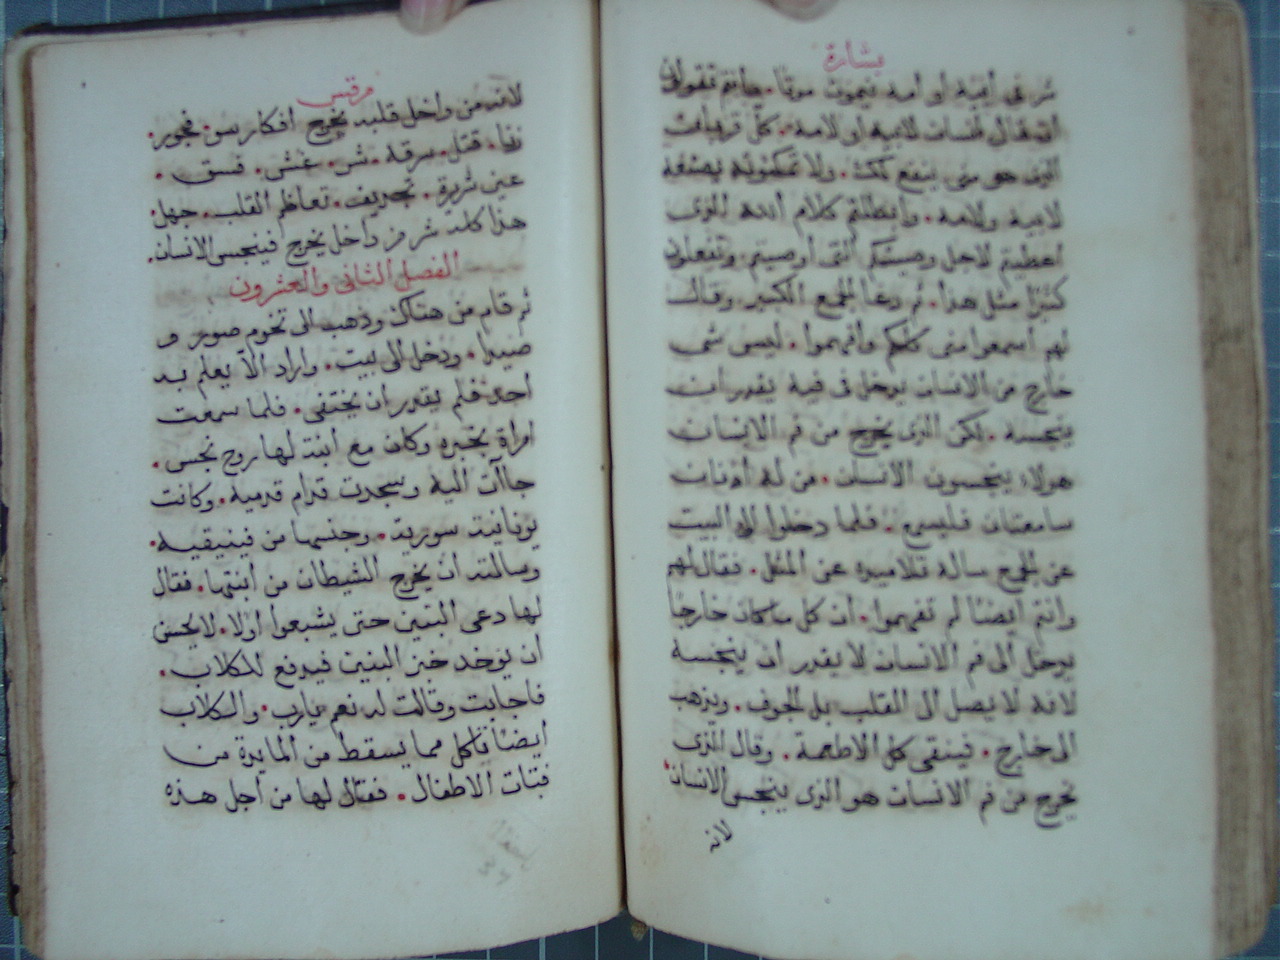 بشارة
شر في أبيه او أمه فيموت موتا. وانتم تقولون
ان قال انسان لابيه او لامه. كل قربانت
الذى هو منى ينتفع بكث. ولا تمكنونه يصنع
لابيه ولامه. وابطلتم كلام الله الذى
أعطيتم لاجل وصيتكم التى أوصيتم وتفعلون
كثيرا مثل هذا. ثم دعا الجميع الكثير. وقال
لهم أسمعوا منى كلكم وأفهموا. ليس شى
خارج من الانسان يدخل فى فيه يقدر ان
ينجسه. لكن الذى يخرج من فم الانسان
هولاء ينجسون الانسان. من له أذنان
سامعتان فليسمع. فلما دخلوا الى البيت
عن الجمع ساله تلاميذه عن المثل. فقال لهم
وانتم ايضا لم تفهموا. ان كل ما كان خارجا
يدخل الى فم الانسان لا يقدر ان ينجسه
لانه لا يصل الى القلب بل الجوف. ويذهب
الى خارج. فينقى كل الاطعمة. وقال الذى
يخرج من فم الانسان هو الذى ينجس الانسان.
لانه
مرقس
لانه من داخل قلبه يخرج أفكار سو. فجور.
زنا. قتل. سرقه. شر. غش. فسق.
عين شريرة. تجديف. تعاظم القلب. جهل.
هذا كله شر من داخل يخرج فينجس الانسان.
الفصل الثانى والعشرون
ثم قام من هناك وذهب الى تخوم صور و
صيدا. ودخل الى بيت. واراد الا يعلم به
أحد فلم يقدر ان يختفى. فلما سمعت
امراة بخبره وكان مع ابنت لها روح نجس.
جاات اليه وسجدت قدام قدميه. وكانت
يونانية سورية. وجنسها من فينيقيه.
وسالته ان يخرج الشيطان من ابنتها. فقال
لها دعى البنين حتى يشبعوا أولا. لا يحسن
أن يوخد خبز البنين فيدفع للكلاب.
فاجابت وقالت له نعم يارب. والكلاب
أيضا تاكل مما يسقط من المايدة من
فتات الاطفال. فقال لها من أجل هذه